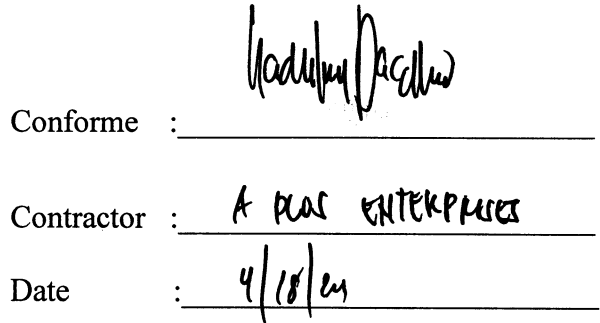 Conforme :
Contractor : A PLUS ENTERPRISES
Date : 4/18/24